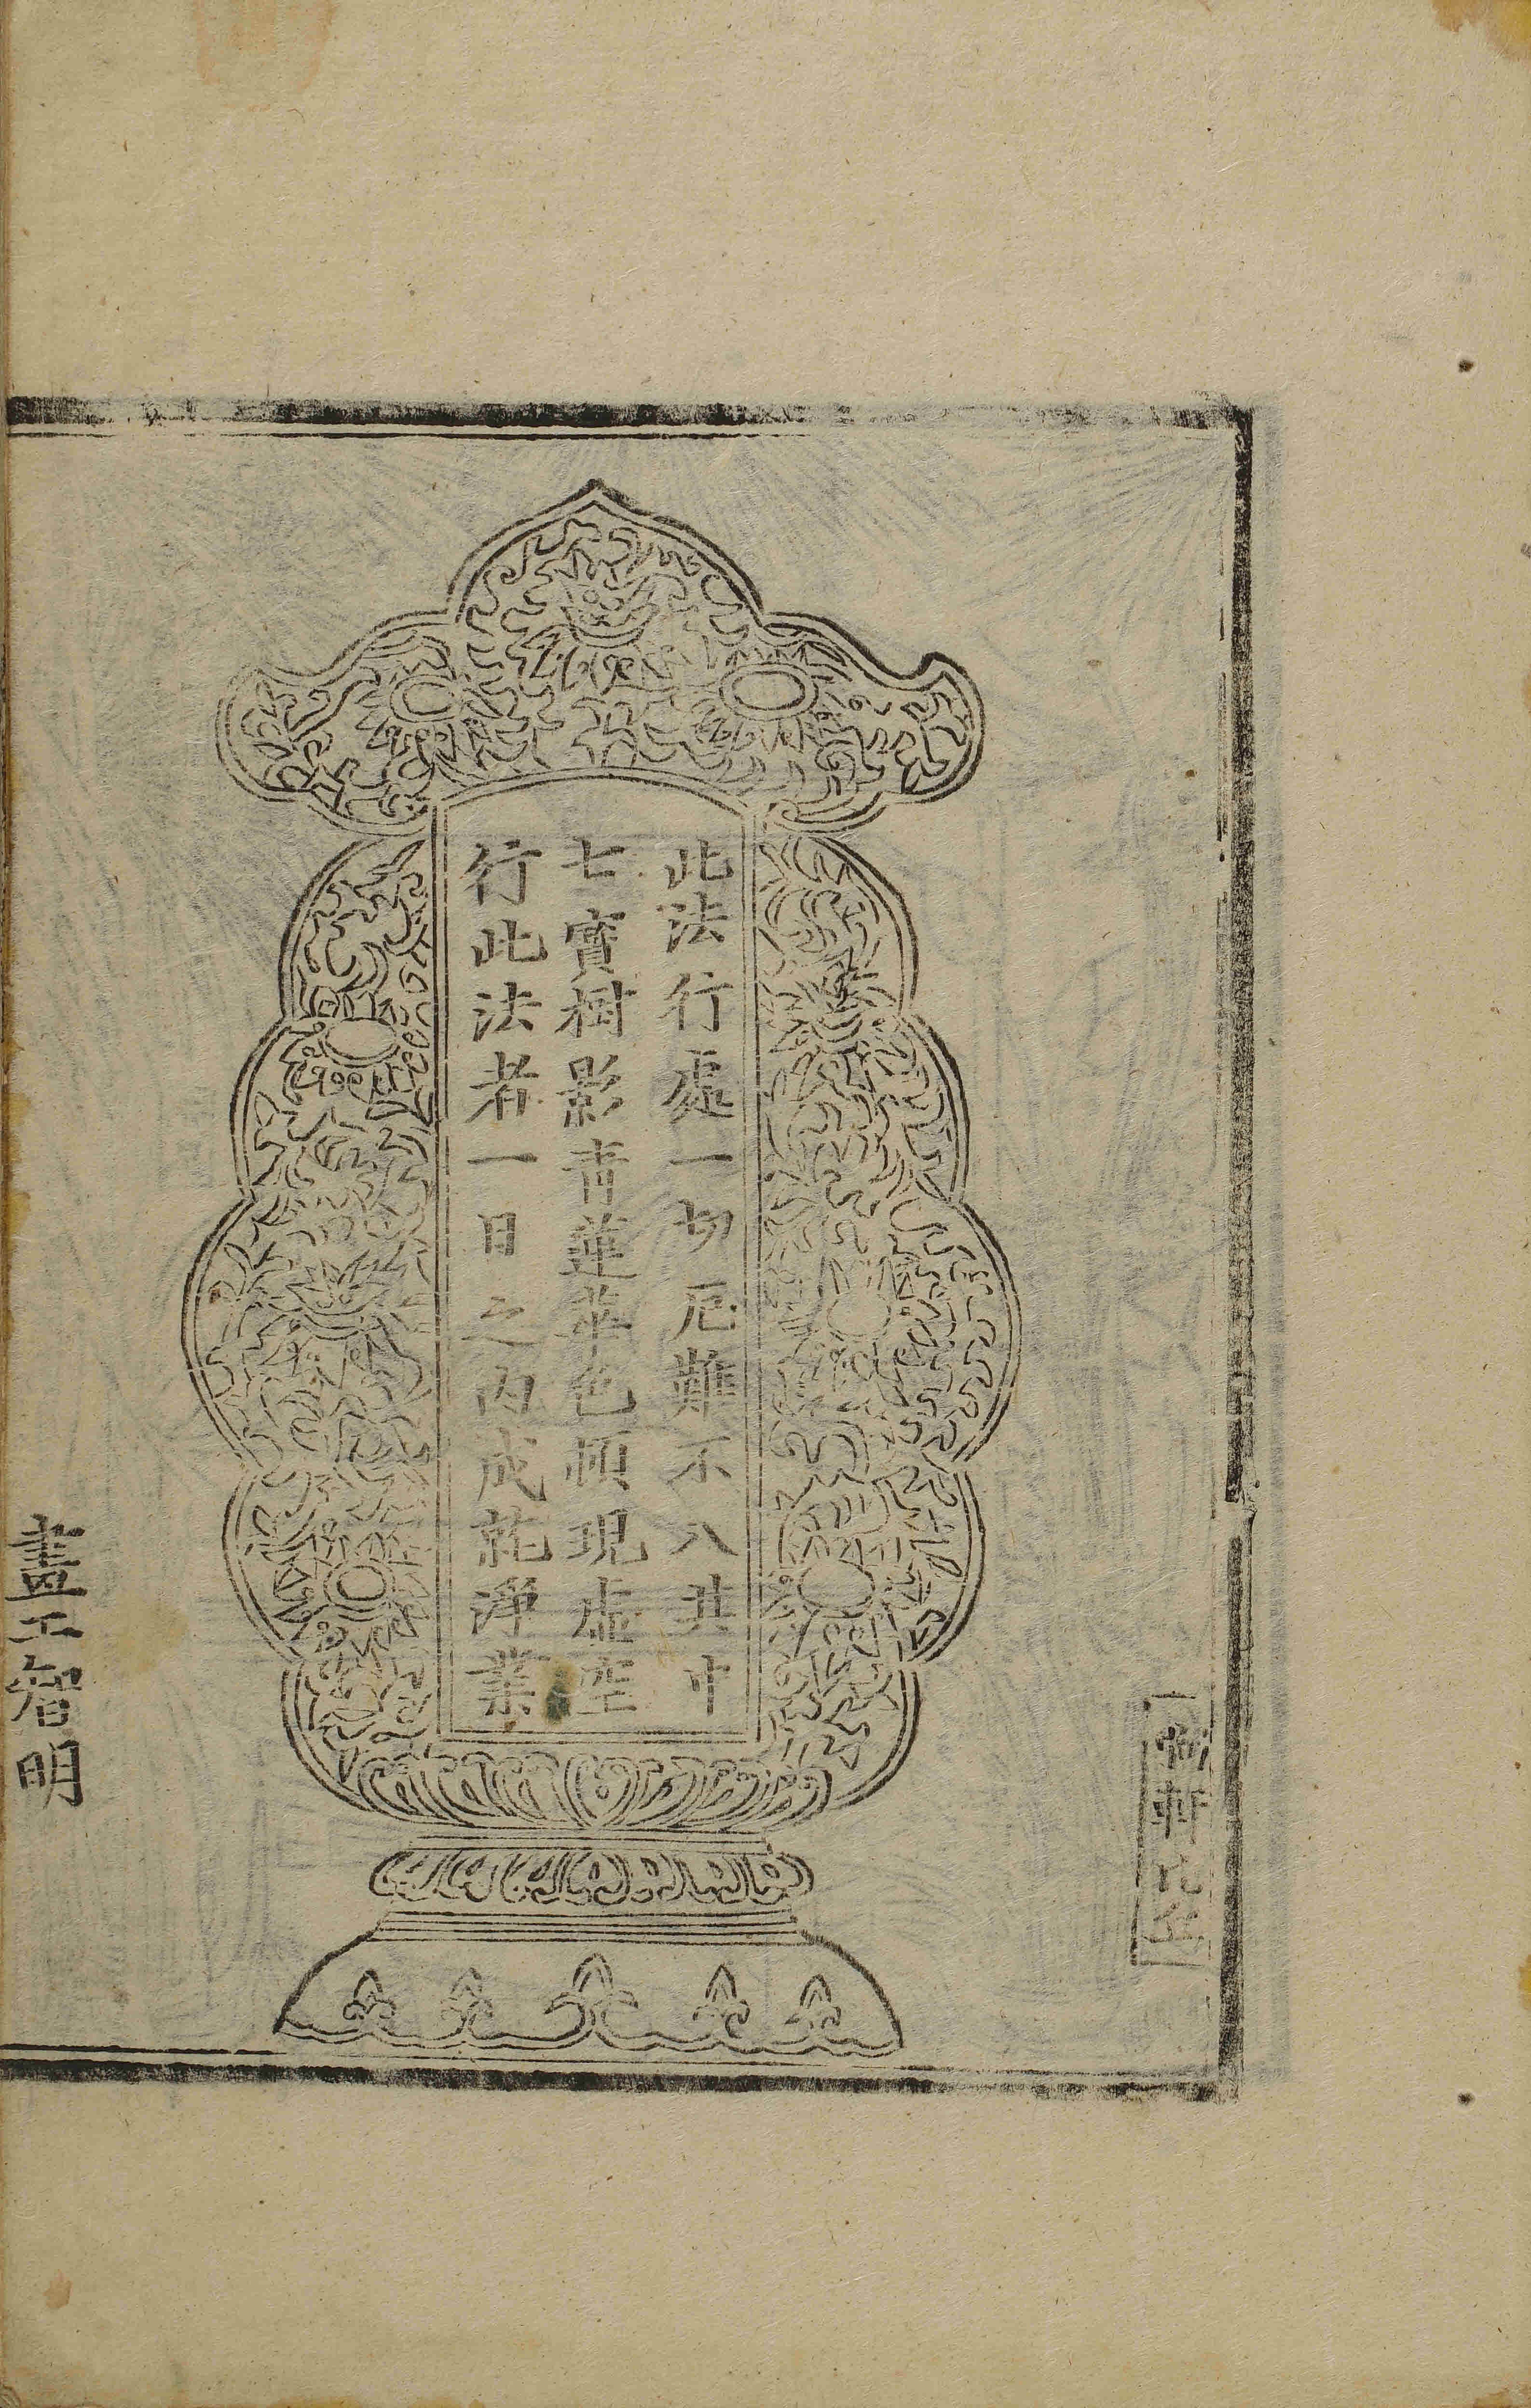 此法行處一切厄難不入其中
七寶樹影青蓮華色頓現虛空
行此法者一日之內成就淨業
畫工智明